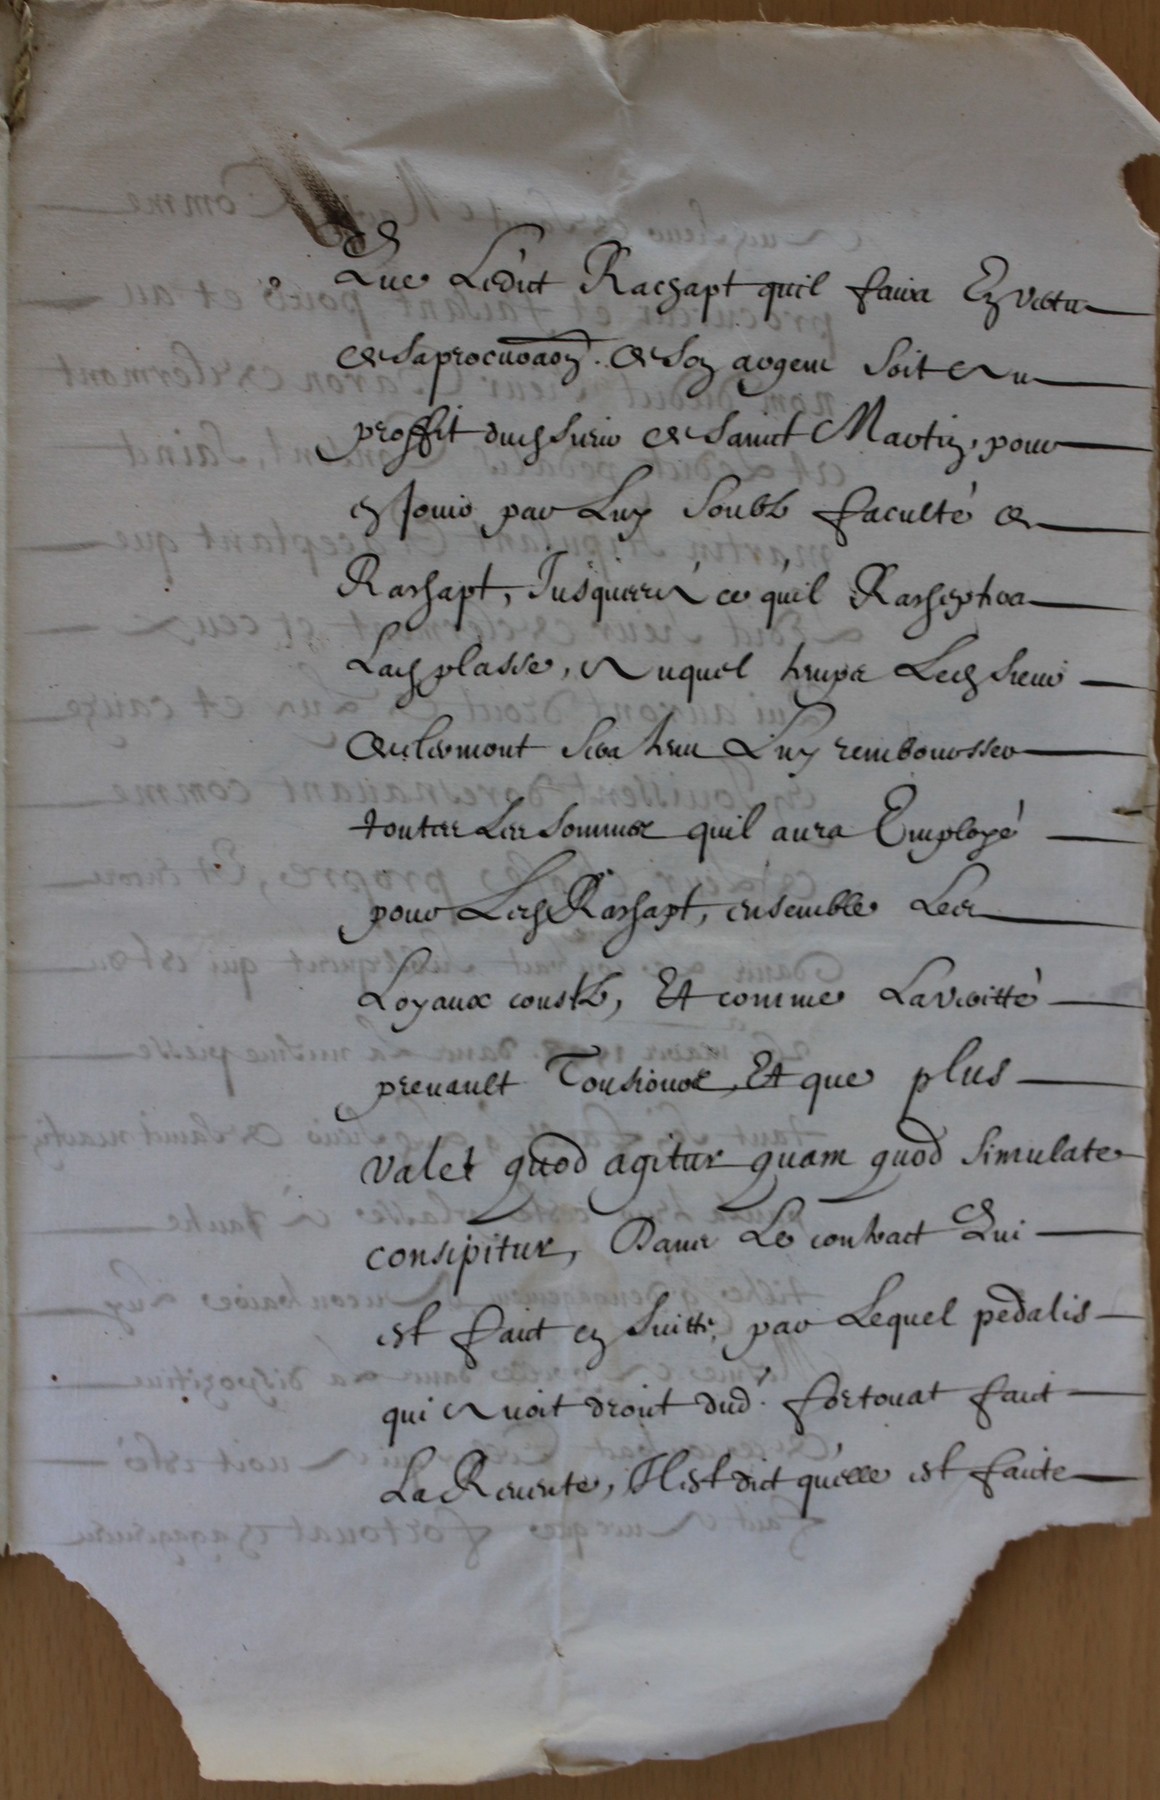 Que Ledict Rachapt quil faira En vertu
de sa procuraon. de son argent soit au
proffit dud sieur de Sainct Martin, pour
en Jouir par Luy soubz faculté de
Rachapt, Jusques a ce quil Racheptera
Lad plasse, auquel temps Led sieur
de clermont sera tenu Luy rembourser
toutes Les sommes quil aura Employé
pour Led Rachapt, ensemble Les
Loyaux coustz, Et comme La veritté
prevault Tousiours, Et que plus
valet quod agitur quam quod simulate
consipitur, Dans Le contract Qui
est faict en suitte, par Lequel pedalis
qui avoit droict dud. fortouat faict
La Revente, Il est dict qu'elle est faicte